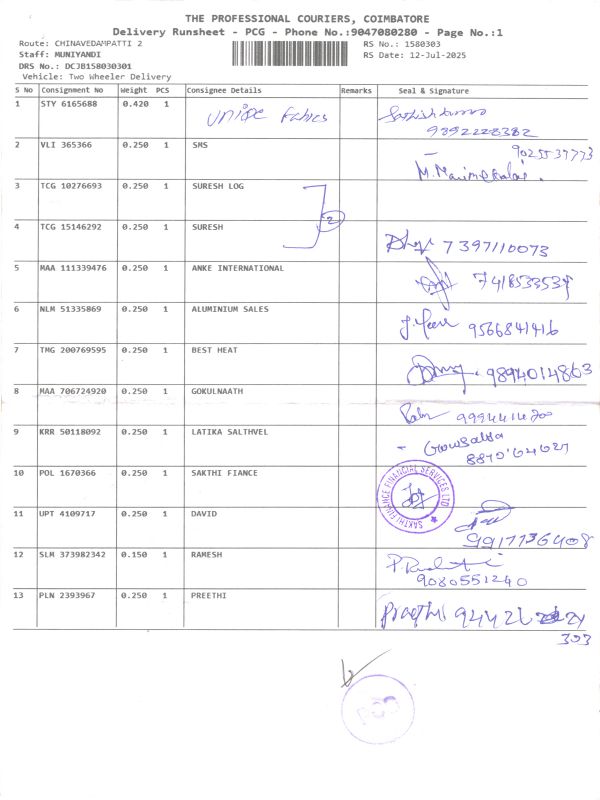 THE PROFESSIONAL COURIERS, COIMBATORE
Delivery Runsheet - PCG - Phone No.:9047080280 - Page No.:1
Route: CHINAVEDAMPATTI 2 RS No.: 1580303
Staff: MUNIYANDI RS Date: 12-Jul-2025
DRS No.: DCJB158030301
Vehicle: Two Wheeler Delivery
S No Consignment No Weight PCS Consignee Details Remarks Seal & Signature
1 STY 6165688 0.420 1
9392228382
2 VLI 365366 0.250 1 SMS 9025537773
3 TCG 10276693 0.250 1 SURESH LOG
2
4 TCG 15146292 0.250 1 SURESH 7397110073
5 MAA 111339476 0.250 1 ANKE INTERNATIONAL
6 NLM 51335869 0.250 1 ALUMINIUM SALES 9566841416
7 TMG 200769595 0.250 1 BEST HEAT 9894014863
8 MAA 706724920 0.250 1 GOKULNAATH
9 KRR 50118092 0.250 1 LATIKA SALTHVEL
10 POL 1670366 0.250 1 SAKTHI FIANCE SAKTHI FINANCE FINANCIAL SERVICES LTD
11 UPT 4109717 0.250 1 DAVID
9917736408
12 SLM 373982342 0.150 1 RAMESH
9080551240
13 PLN 2393967 0.250 1 PREETHI Preethi
303